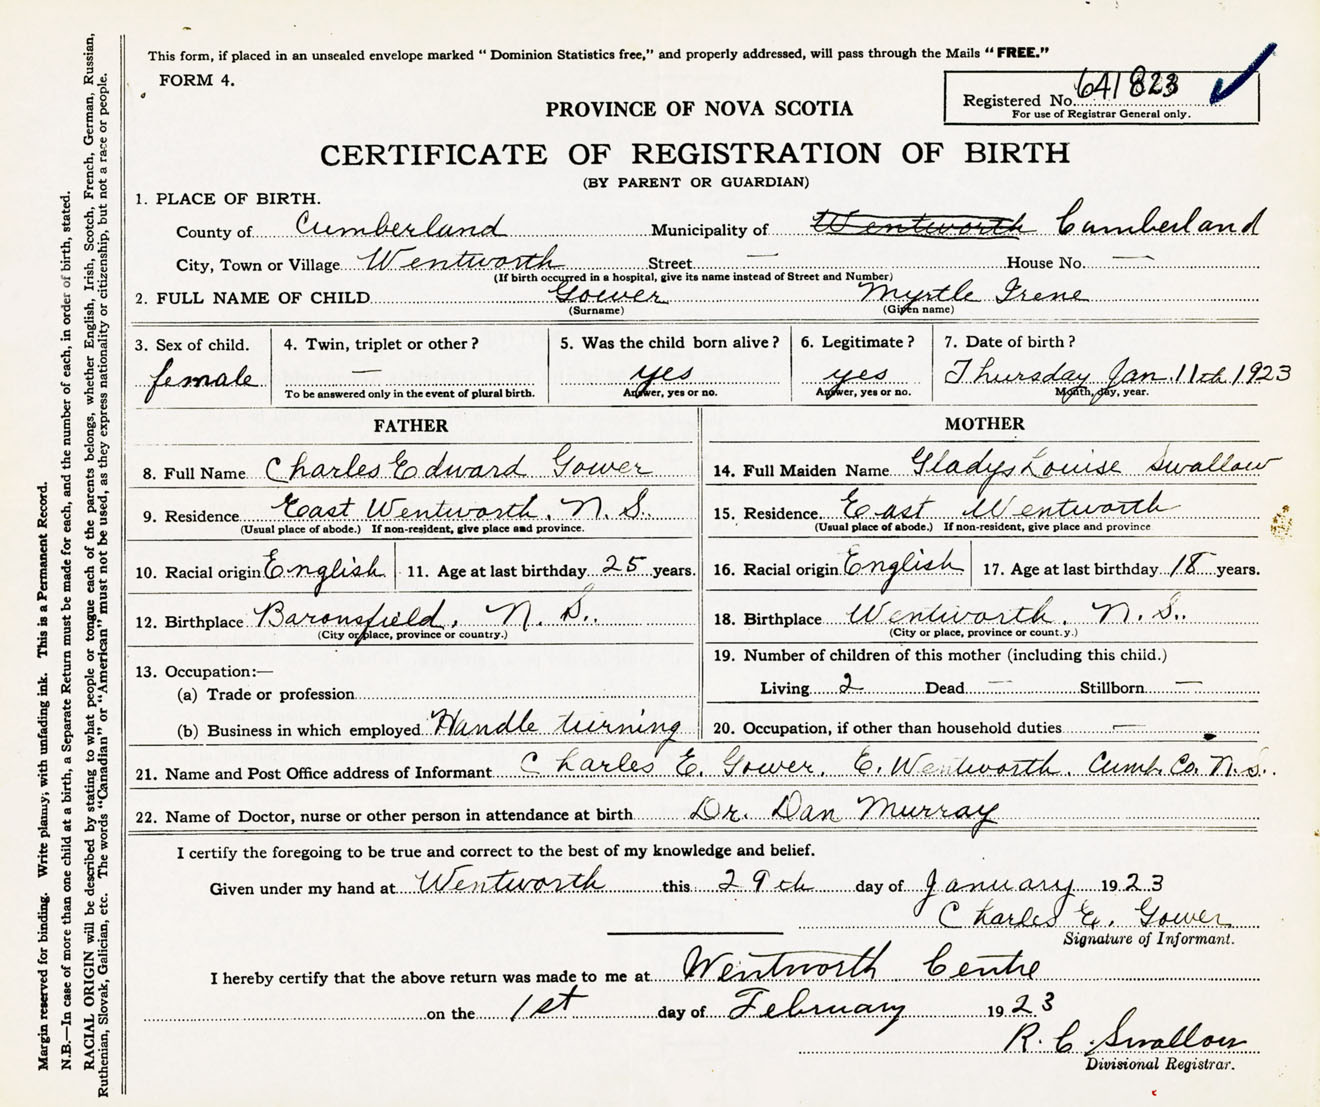 This form, if placed in an unsealed envelope marked "Dominion Statistics free," and properly addressed, will pass through the Mails "FREE."
FORM 4.
Registered No. 641823
For use of Registrar General only.
PROVINCE OF NOVA SCOTIA
CERTIFICATE OF REGISTRATION OF BIRTH
(BY PARENT OR GUARDIAN)
1. PLACE OF BIRTH.
County of Cumberland Municipality of Wentworth Cumberland
City, Town or Village Wentworth Street — House No. —
(If birth occurred in a hospital, give its name instead of Street and Number)
2. FULL NAME OF CHILD Gower Myrtle Irene
(Surname) (Given name)
3. Sex of child. 4. Twin, triplet or other? 5. Was the child born alive? 6. Legitimate? 7. Date of birth?
female — yes yes Thursday Jan. 11th 1923
To be answered only in the event of plural birth. Answer, yes or no. Answer, yes or no. Month, day, year.
FATHER
8. Full Name Charles Edward Gower
9. Residence East Wentworth, N. S.
(Usual place of abode.) If non-resident, give place and province.
10. Racial origin English 11. Age at last birthday 25 years.
12. Birthplace Baronsfield, N. S.
(City or place, province or country.)
13. Occupation:—
(a) Trade or profession
(b) Business in which employed Handle turning
MOTHER
14. Full Maiden Name Gladys Louise Swallow
15. Residence East Wentworth
(Usual place of abode.) If non-resident, give place and province
16. Racial origin English 17. Age at last birthday 18 years.
18. Birthplace Wentworth, N. S.
(City or place, province or count.y.)
19. Number of children of this mother (including this child.)
Living 2 Dead — Stillborn —
20. Occupation, if other than household duties —
21. Name and Post Office address of Informant Charles E. Gower, E. Wentworth, Cumb. Co. N.S.
22. Name of Doctor, nurse or other person in attendance at birth Dr. Dan Murray
I certify the foregoing to be true and correct to the best of my knowledge and belief.
Given under my hand at Wentworth this 29th day of January 1923
Charles E. Gower
Signature of Informant.
I hereby certify that the above return was made to me at Wentworth Centre
on the 1st day of February 1923
R. C. Swallow
Divisional Registrar.
Margin reserved for binding. Write plainly; with unfading ink. This is a Permanent Record.
N.B.—In case of more than one child at a birth, a Separate Return must be made for each, and the number of each, in order of birth, stated.
RACIAL ORIGIN will be described by stating to what people or tongue each of the parents belongs, whether English, Irish, Scotch, French, German, Russian,
Ruthenian, Slovak, Galician, etc. The words "Canadian" or "American" must not be used, as they express nationality or citizenship, but not a race or people.